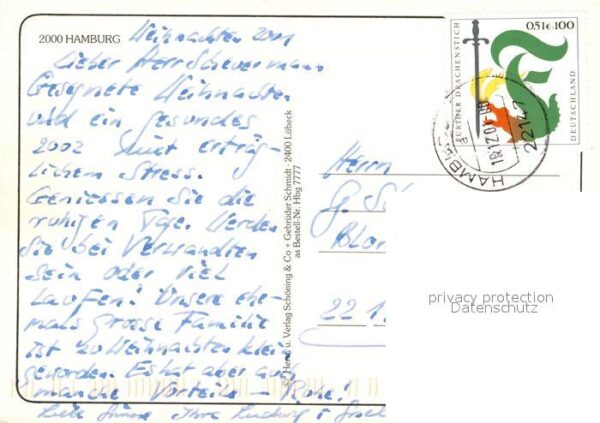 2000 HAMBURG
Weihnachten 2001
Lieber Herr Scheuermann
Gesegnete Weihnachten
und ein gesundes
2002 mit erträg-
lichem Stress.
Geniessen Sie die
ruhigen Tage. Werden
Sie bei Verwandten
sein oder viel
laufen? Unsere ehe-
mals grosse Familie
ist zu Weihnachten klein
geworden. Es hat aber auch
manche Vorteile - Ruhe!
Liebe Grüsse Ihre
© Herst. u. Verlag Schöning & Co + Gebrüder Schmidt · 2400 Lübeck
as Bestell-Nr. Hbg 7777
FURTHER DRACHENSTICH
0,51€ 100
DEUTSCHLAND
HAMBURG
a
18.12.01
22147
Herrn
G.
22 1
privacy protection
Datenschutz